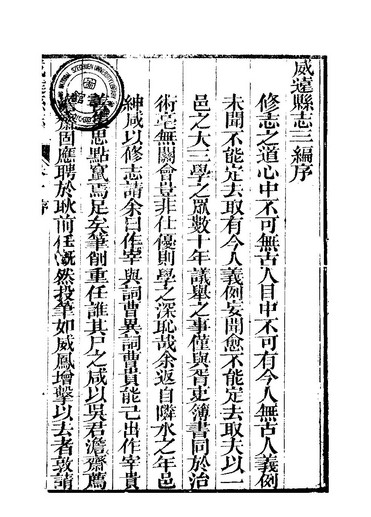 威遠縣志三編序
修志之道心中不可無古人目中不可有今人無古人義例
未聞不能定去取有今人義例妄聞愈不能定去取夫以一
邑之大三學之眾數十年議舉之事僅與胥吏簿書同於治
術毫無關會豈非仕優則學之深恥哉余返自瞵水之年邑
紳咸以修志請余曰作宰與詞曹異詞曹貴能己出作宰貴
思點竄焉足矣筆削重任誰其尸之咸以吳君澹齋薦
齋固應聘於耿前任漑然投筆如威鳳增擊以去者敦請